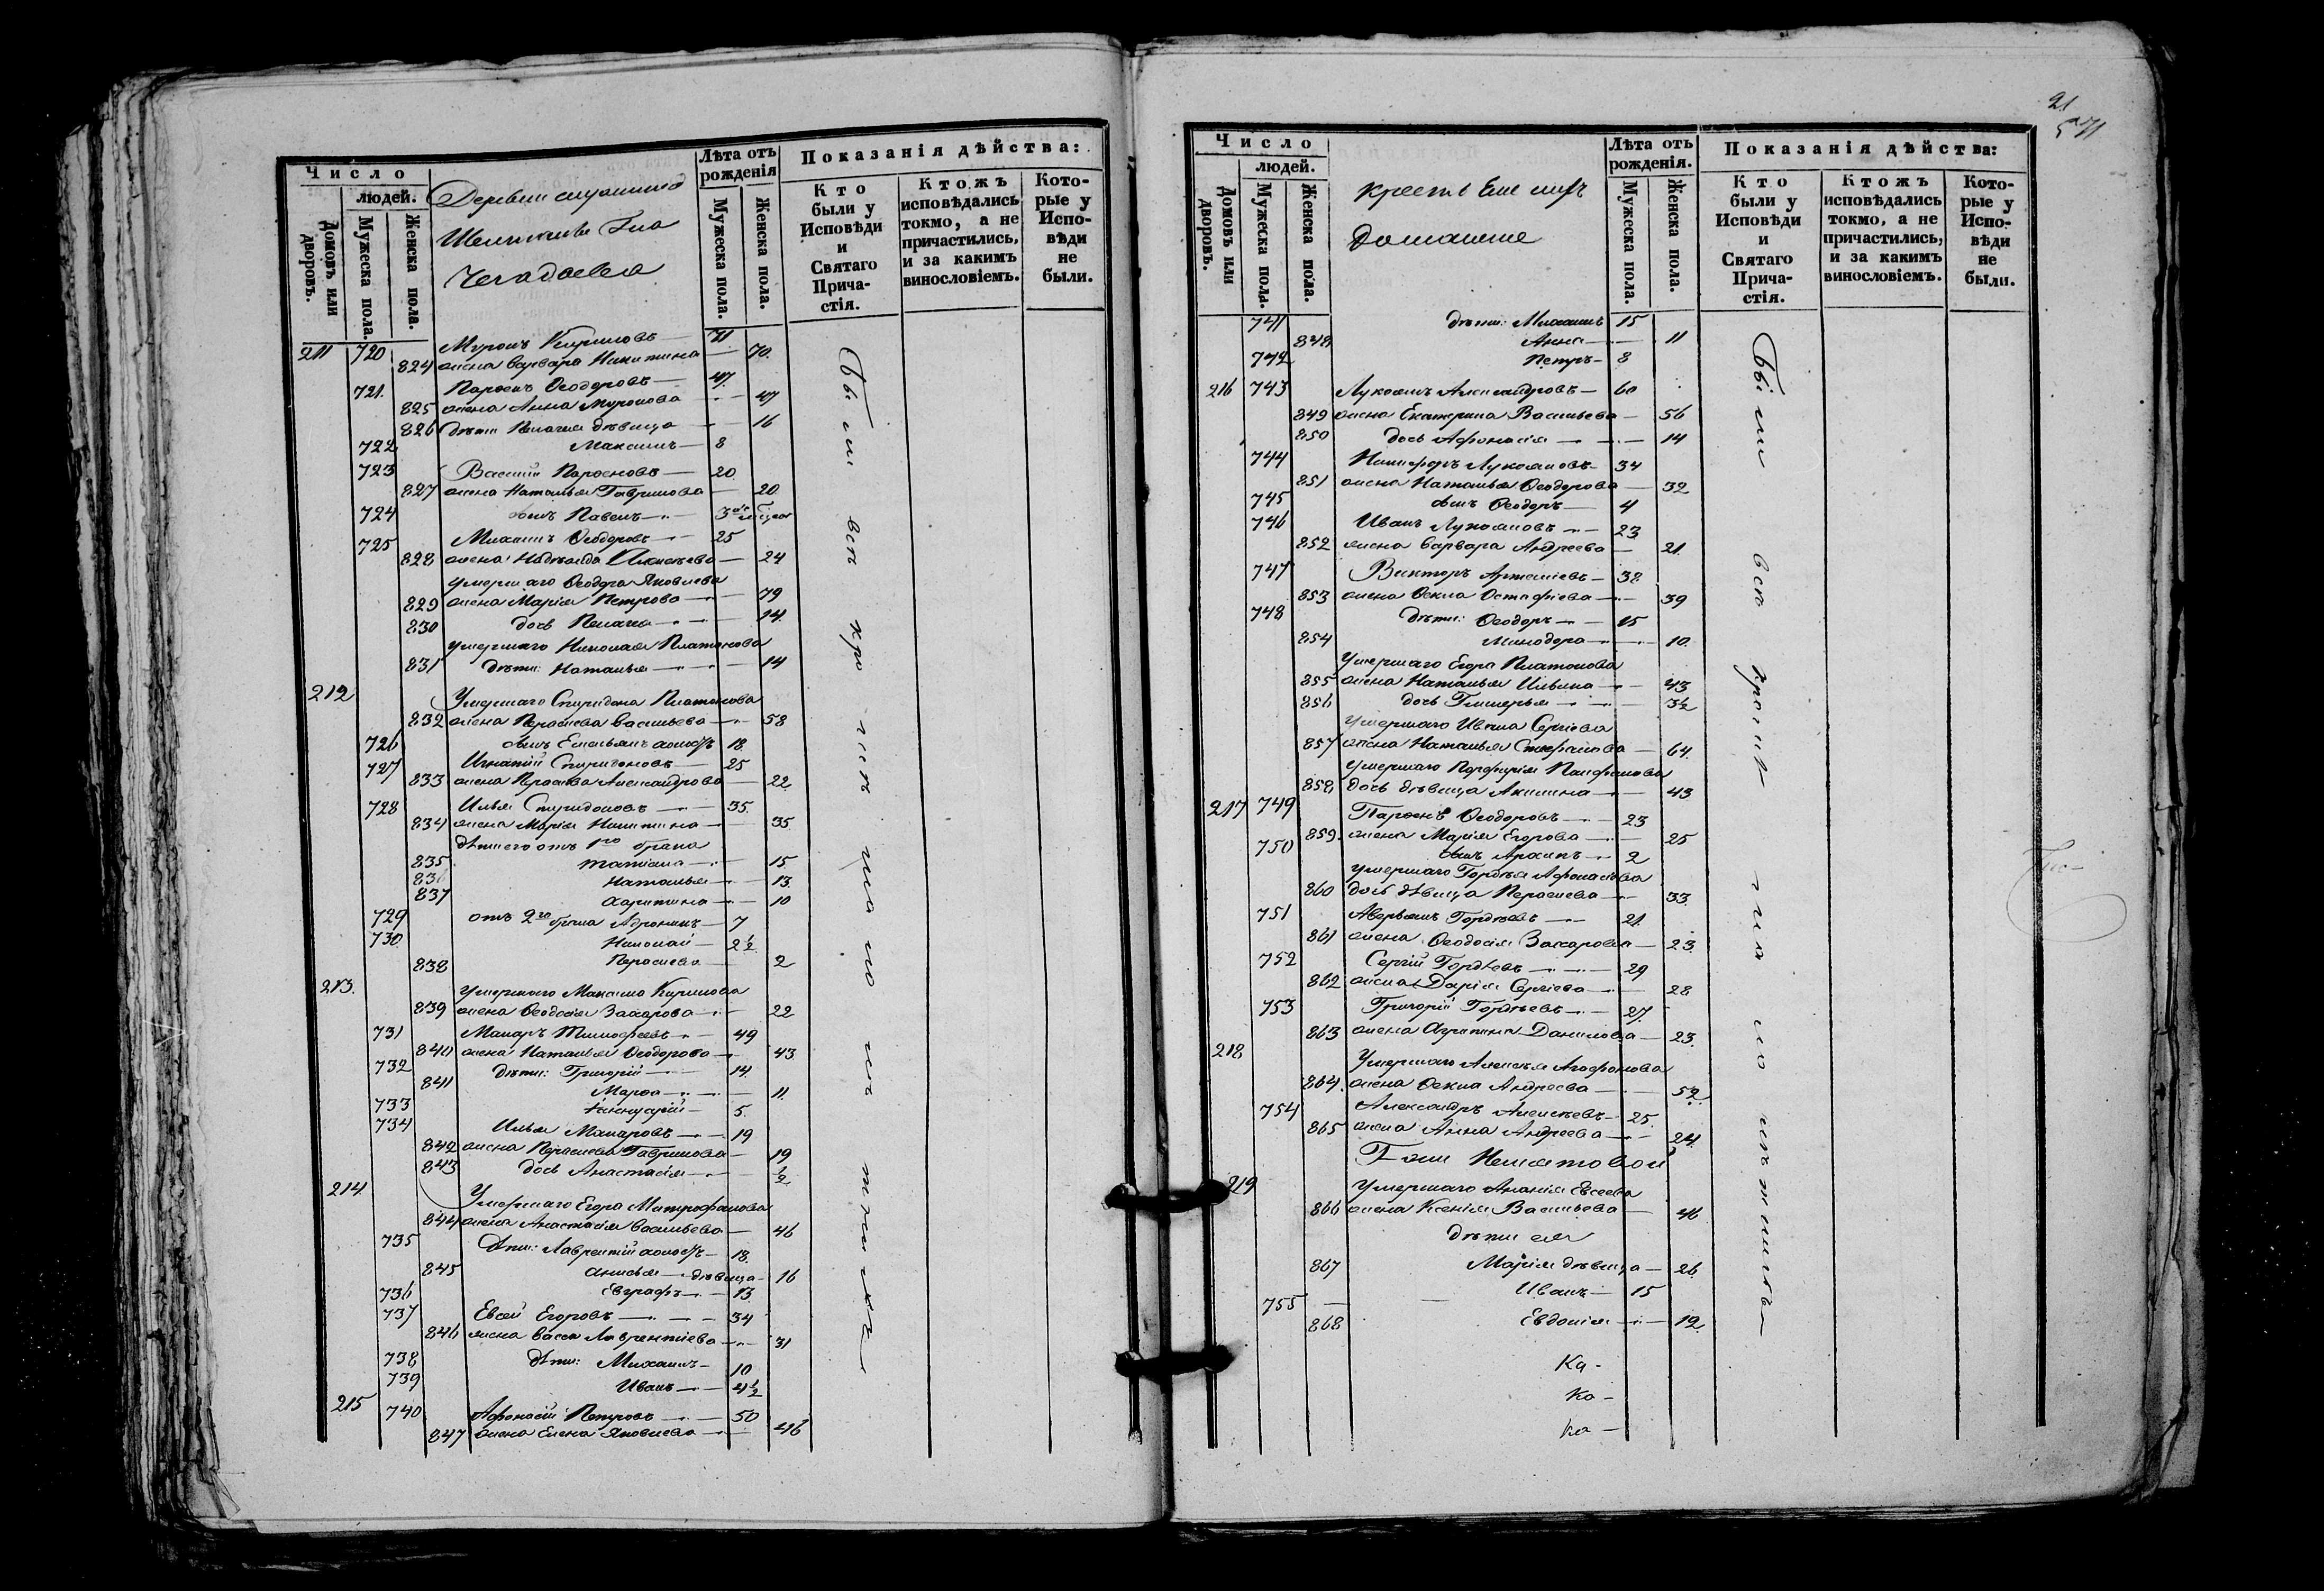 Число
людей.
Домовъ или дворовъ.
Мужеска пола.
Женска пола.
Лѣта отъ рожденія
Мужеска пола.
Женска пола.
Показанія дѣйства:
Кто были у Исповѣди и Святаго Прича-стія.
Ктожъ исповѣдались токмо, а не причастились, и за какимъ винословіемъ.
Кото-рые у Испо-вѣди не были.
Деревни
Чегодаева
211 720 Миронъ Кириловъ 71
824 жена Варвара Никитина 70
721 Парѳенъ Ѳеодоровъ 47
825 жена Анна Миронова 47
826 дѣти Пелагея дѣвица 16
722 Максимъ 8
723 Василій Парѳеновъ 20
827 жена Наталья Гаврилова 20
724 сынъ Павелъ
725 Михаилъ Ѳеодоровъ 25
828 жена Надежда Алексѣева 24
умершаго Ѳеодора Яковлева
829 жена Марія Петрова 79
830 дочь Пелагея 14
умершаго Николая Платонова
831 дѣти: Наталья 14
212 Умершаго Спиридона Платонова
832 жена Параскева Васильева 58
726 сынъ Емельянъ холостъ 18
727 Игнатій Спиридоновъ 25
833 жена Параскева Александрова 22
728 Илья Спиридоновъ 35
834 жена Марія Никитина 35
дѣти его отъ 1го брака
835 Татіана 15
836 Наталья 13
837 Харитина 10
729 отъ 2го брака Андроникъ 7
730 Николай 2½
838 Параскева 2
213 умершаго Максима Кирилова
839 жена Ѳеодосія Захарова 22
731 Макаръ Тимофеевъ 49
840 жена Наталья Ѳеодорова 43
732 дѣти: Григорій 14
841 Марѳа 11
733 5
734 Илья Макаровъ 19
842 жена Параскева Гаврилова 19
843 дочь Анастасія ½
214 Умершаго Егора Митрофанова
844 жена Анастасія Васильева 46
735 дѣти: Лаврентій холостъ 18
845 Анисья дѣвица 16
736 Евграфъ 13
737 Евсей Егоровъ 34
846 жена Васса Лаврентіева 31
738 дѣти: Михаилъ 10
739 Иванъ 4½
215 740 Афонасій Петровъ 50
847 жена Елена Яковлева 46
Были всѣ
21
Число
людей.
Домовъ или дворовъ.
Мужеска пола.
Женска пола.
Лѣта отъ рожденія.
Мужеска пола.
Женска пола.
Показанія дѣйства:
Кто были у Исповѣди и Святаго Прича-стія.
Ктожъ исповѣдались токмо, а не причастились, и за какимъ винословіемъ.
Кото-рые у Испо-вѣди не были.
крестьяне ихъ
домашніе
741 дѣти: Михаилъ 15
848 Анна 11
742 Петръ 8
216 743 Лукьянъ Александровъ 60
849 жена Екатерина Васильева 56
850 дочь Афонасія 14
744 Никифоръ Лукьяновъ 34
851 жена Наталья Ѳеодорова 32
745 сынъ Ѳеодоръ 4
746 Иванъ Лукьяновъ 23
852 жена Варвара Андреева 21
747 Викторъ Артеміевъ 38
853 жена Ѳекла Остафіева 39
748 дѣти: Ѳеодоръ 15
854 Минодора 10
Умершаго Егора Платонова
855 жена Наталья Ильина 43
856 дочь Гликерья 3½
умершаго Ивана Сергіева
857 жена Наталья Стефанова 64
умершаго Порфирія
858 дочь дѣвица Акилина 43
217 749 Парѳенъ Ѳеодоровъ 23
859 жена Марія Егорова 25
750 сынъ Архипъ 2
умершаго Гордѣя Афонасьева
860 дочь дѣвица Параскева 33
751 Аверьянъ Гордѣевъ 21
861 жена Ѳеодосія Захарова 23
752 Сергій Гордѣевъ 29
862 жена Дарія Сергіева 28
753 Григорій Гордѣевъ 27
863 жена Агрипина Данилова 23
218 Умершаго Алексѣя Агафонова
864 жена Ѳекла Андреева 52
754 Александръ Алексѣевъ 25
865 жена Анна Андреева 24
219 умершаго Ананія Евсеева
866 жена Ксенія Васильева 46
дѣти ея
867 Марія дѣвица 26
755 Иванъ 15
868 Евдокія 12
Ка-
Ка-
Ка-
Были всѣ кромѣ